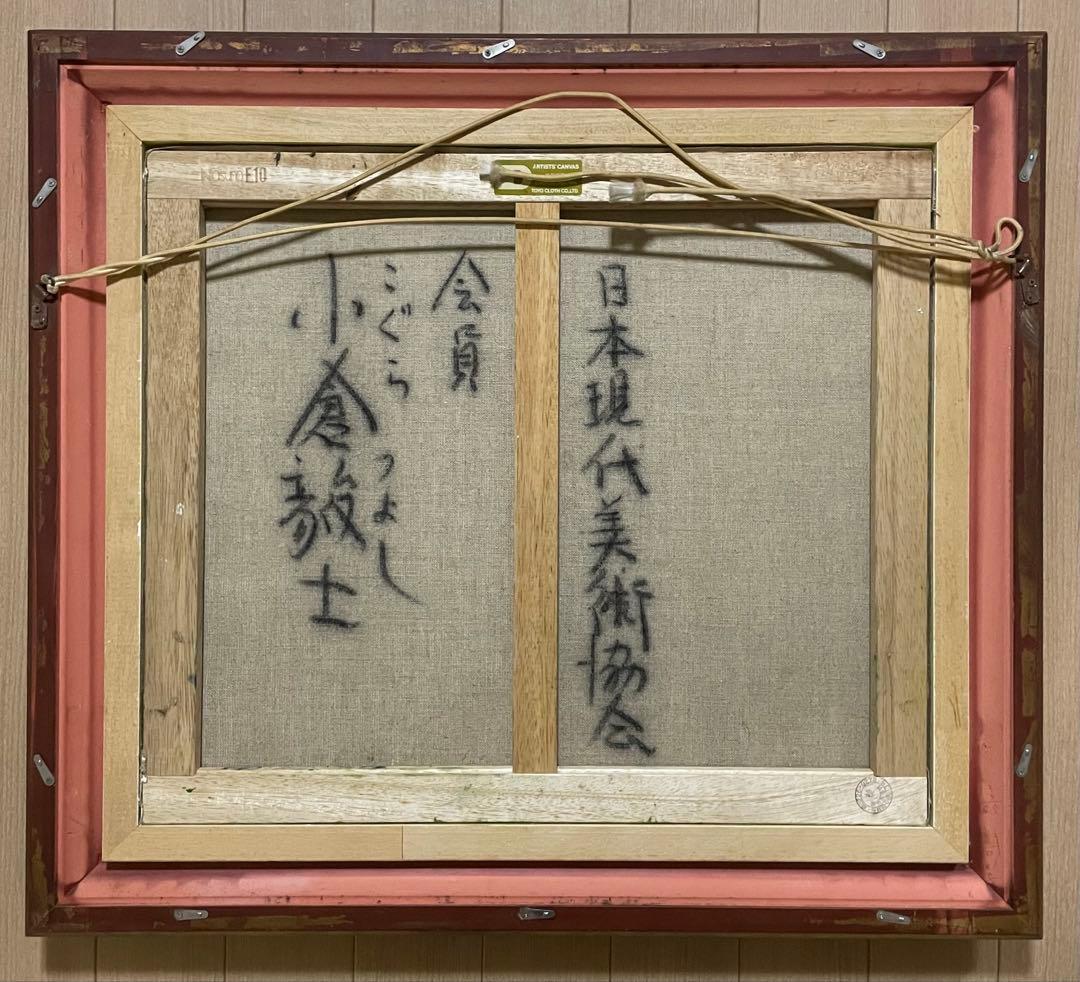 F10
ARTISTS' CANVAS
TOYO CLOTH CO.,LTD
日本現代美術協会
会員
こぐら つよし
小倉毅士